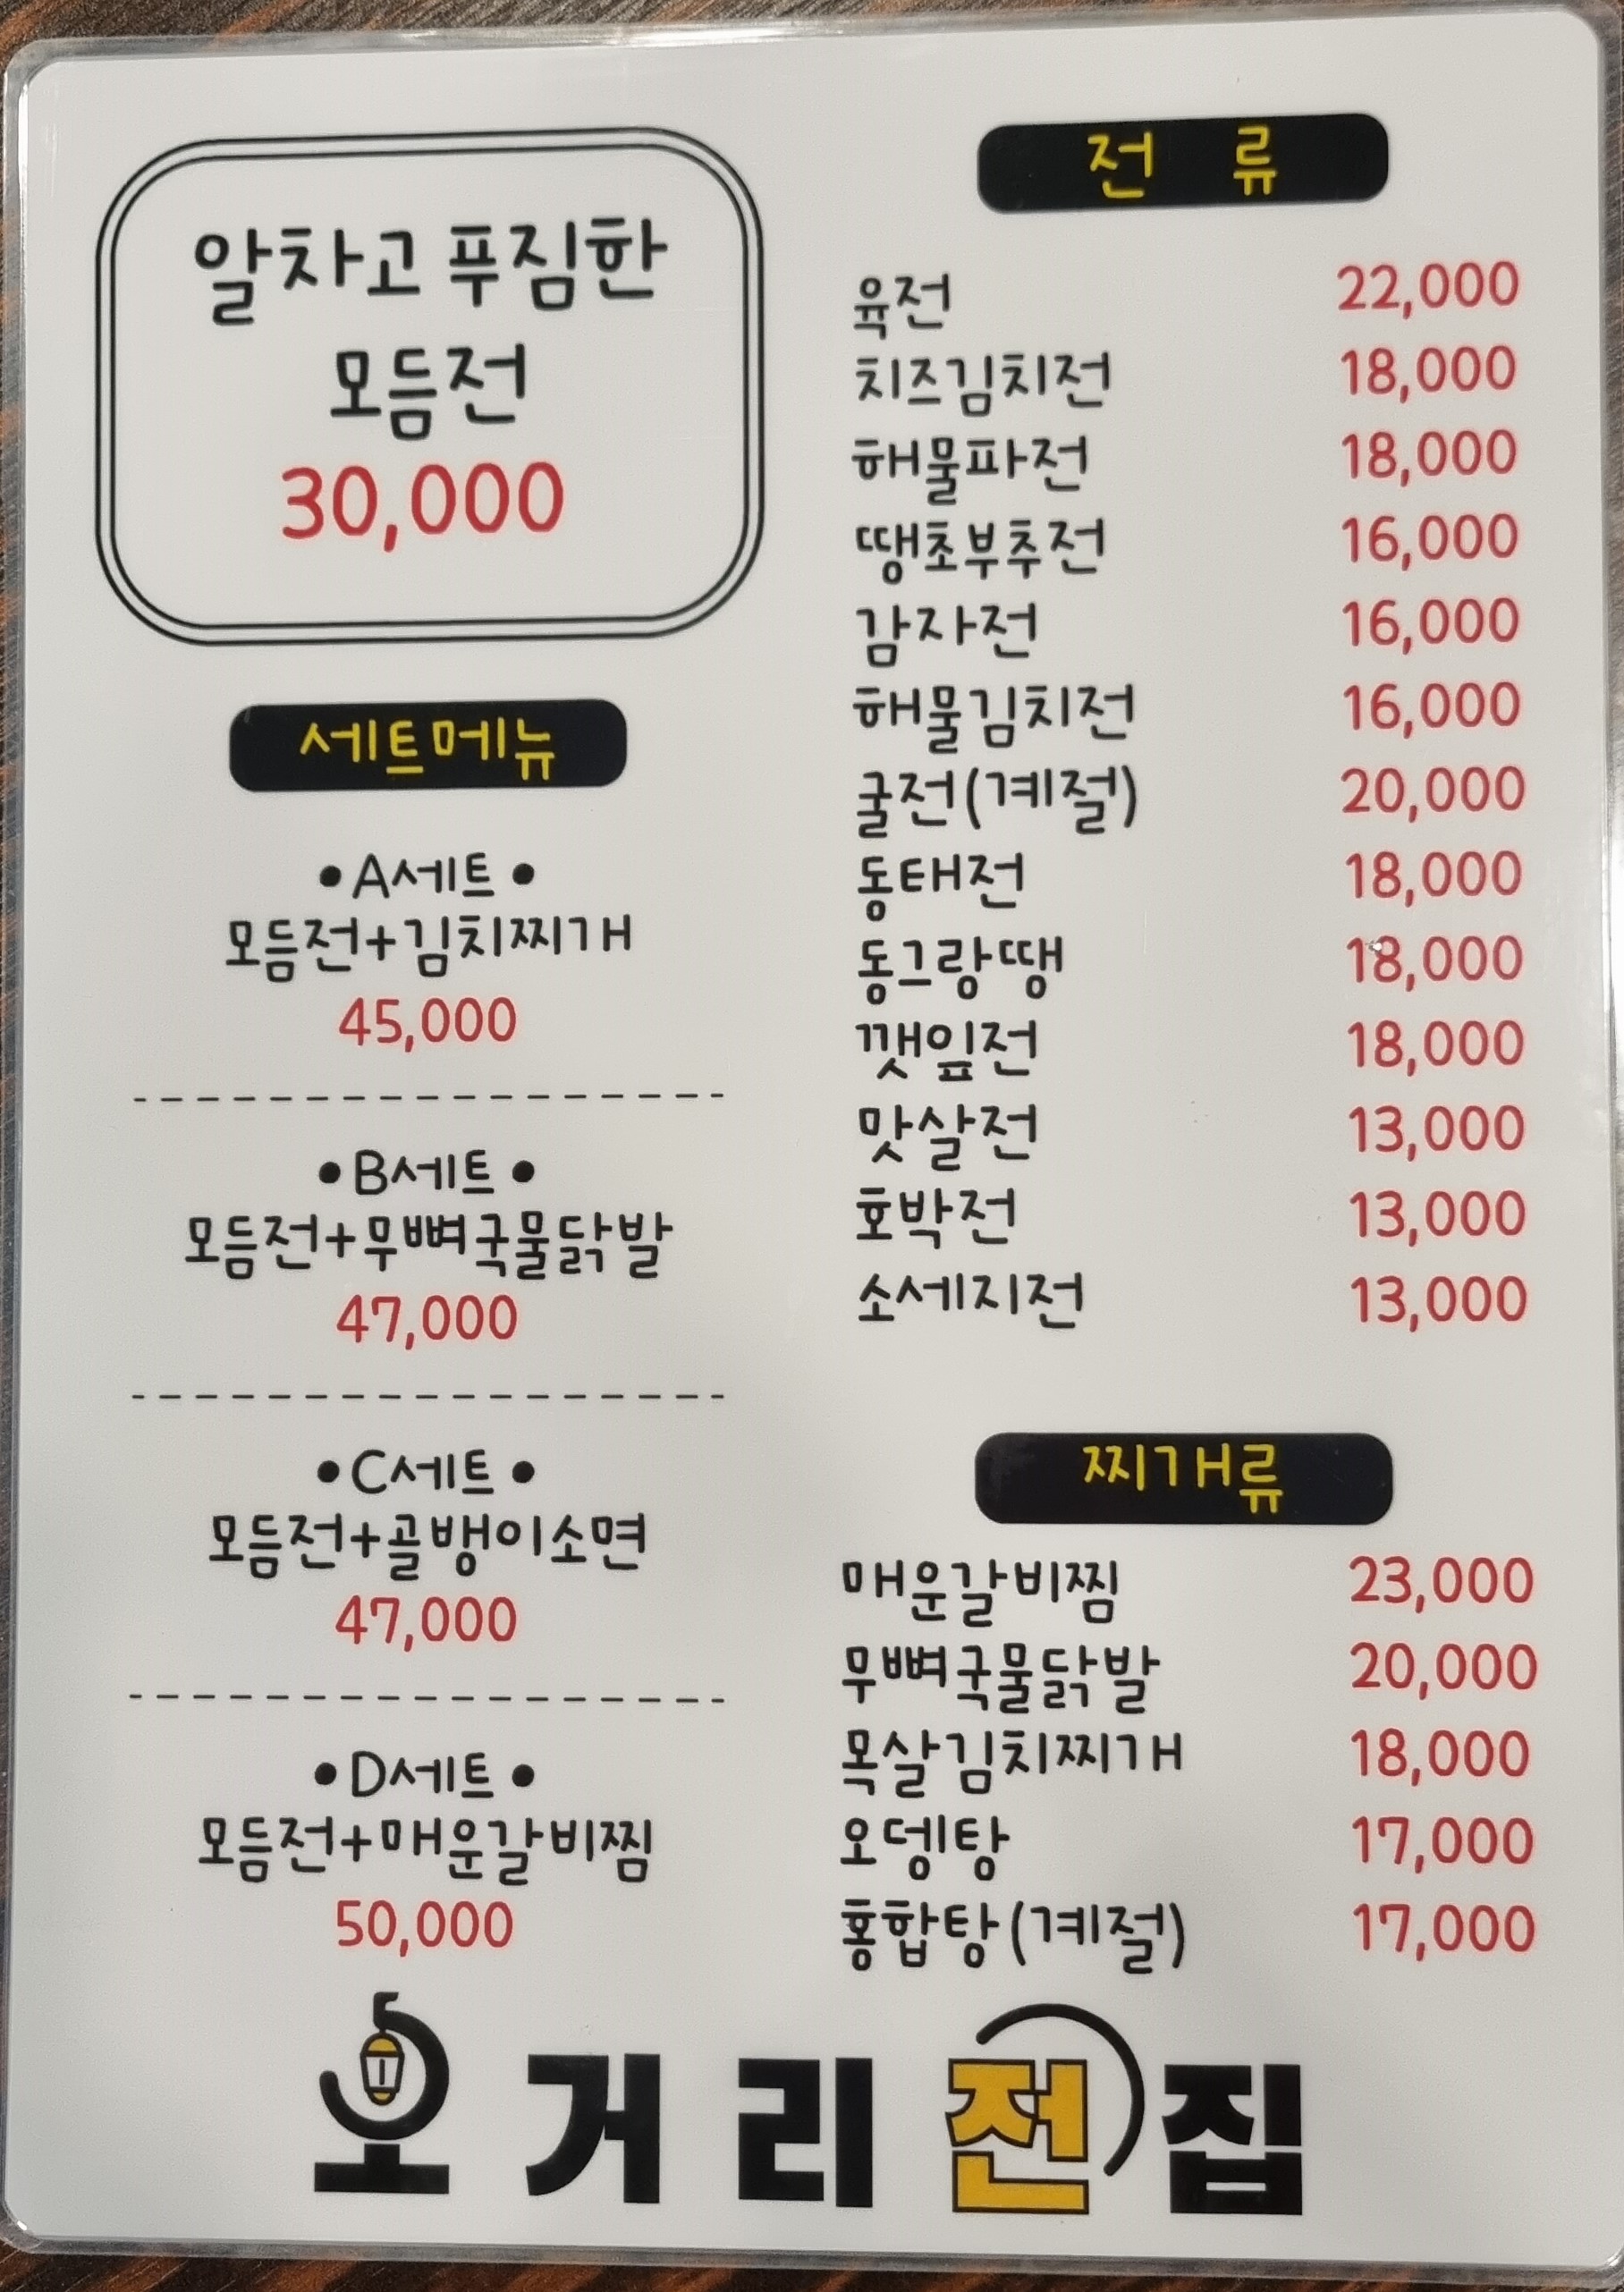 알차고 푸짐한
모듬전
30,000
세트메뉴
•A세트•
모듬전+김치찌개
45,000
•B세트•
모듬전+무뼈국물닭발
47,000
•C세트•
모듬전+골뱅이소면
47,000
•D세트•
모듬전+매운갈비찜
50,000
전 류
육전 22,000
치즈김치전 18,000
해물파전 18,000
땡초부추전 16,000
감자전 16,000
해물김치전 16,000
굴전(계절) 20,000
동태전 18,000
동그랑땡 18,000
깻잎전 18,000
맛살전 13,000
호박전 13,000
소세지전 13,000
찌개류
매운갈비찜 23,000
무뼈국물닭발 20,000
목살김치찌개 18,000
오뎅탕 17,000
홍합탕(계절) 17,000
오거리전집